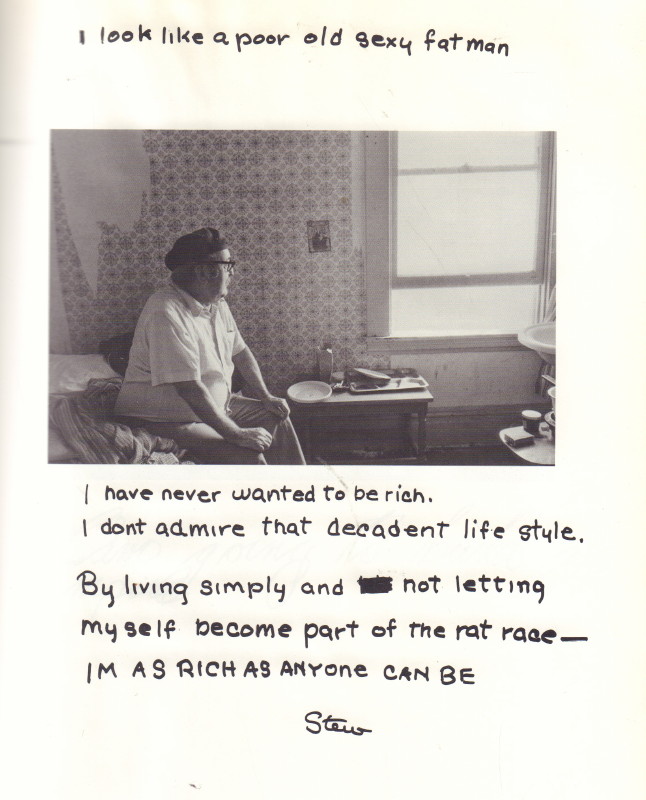 I look like a poor old sexy fat man
I have never wanted to be rich.
I dont admire that decadent life style.
By living simply and not letting
myself become part of the rat race—
IM AS RICH AS ANYONE CAN BE
Stew